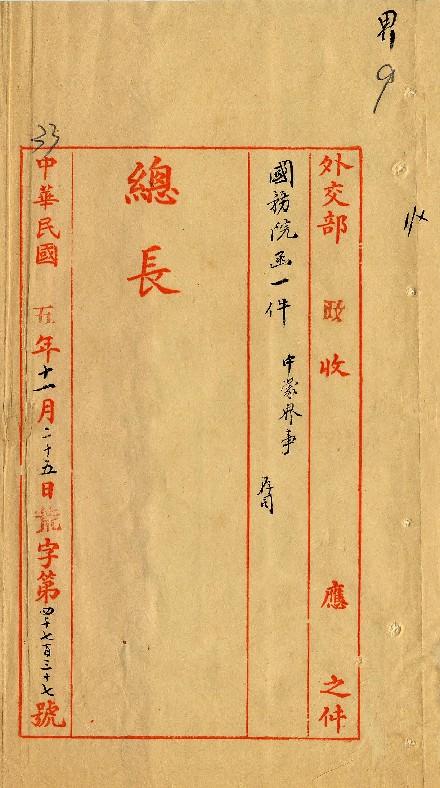 界
9
外交部 政 收 應 之件
國務院函一件 中蒙界事
總長
33
中華民國五年十一月二十五日荒字第四千七百三十七號